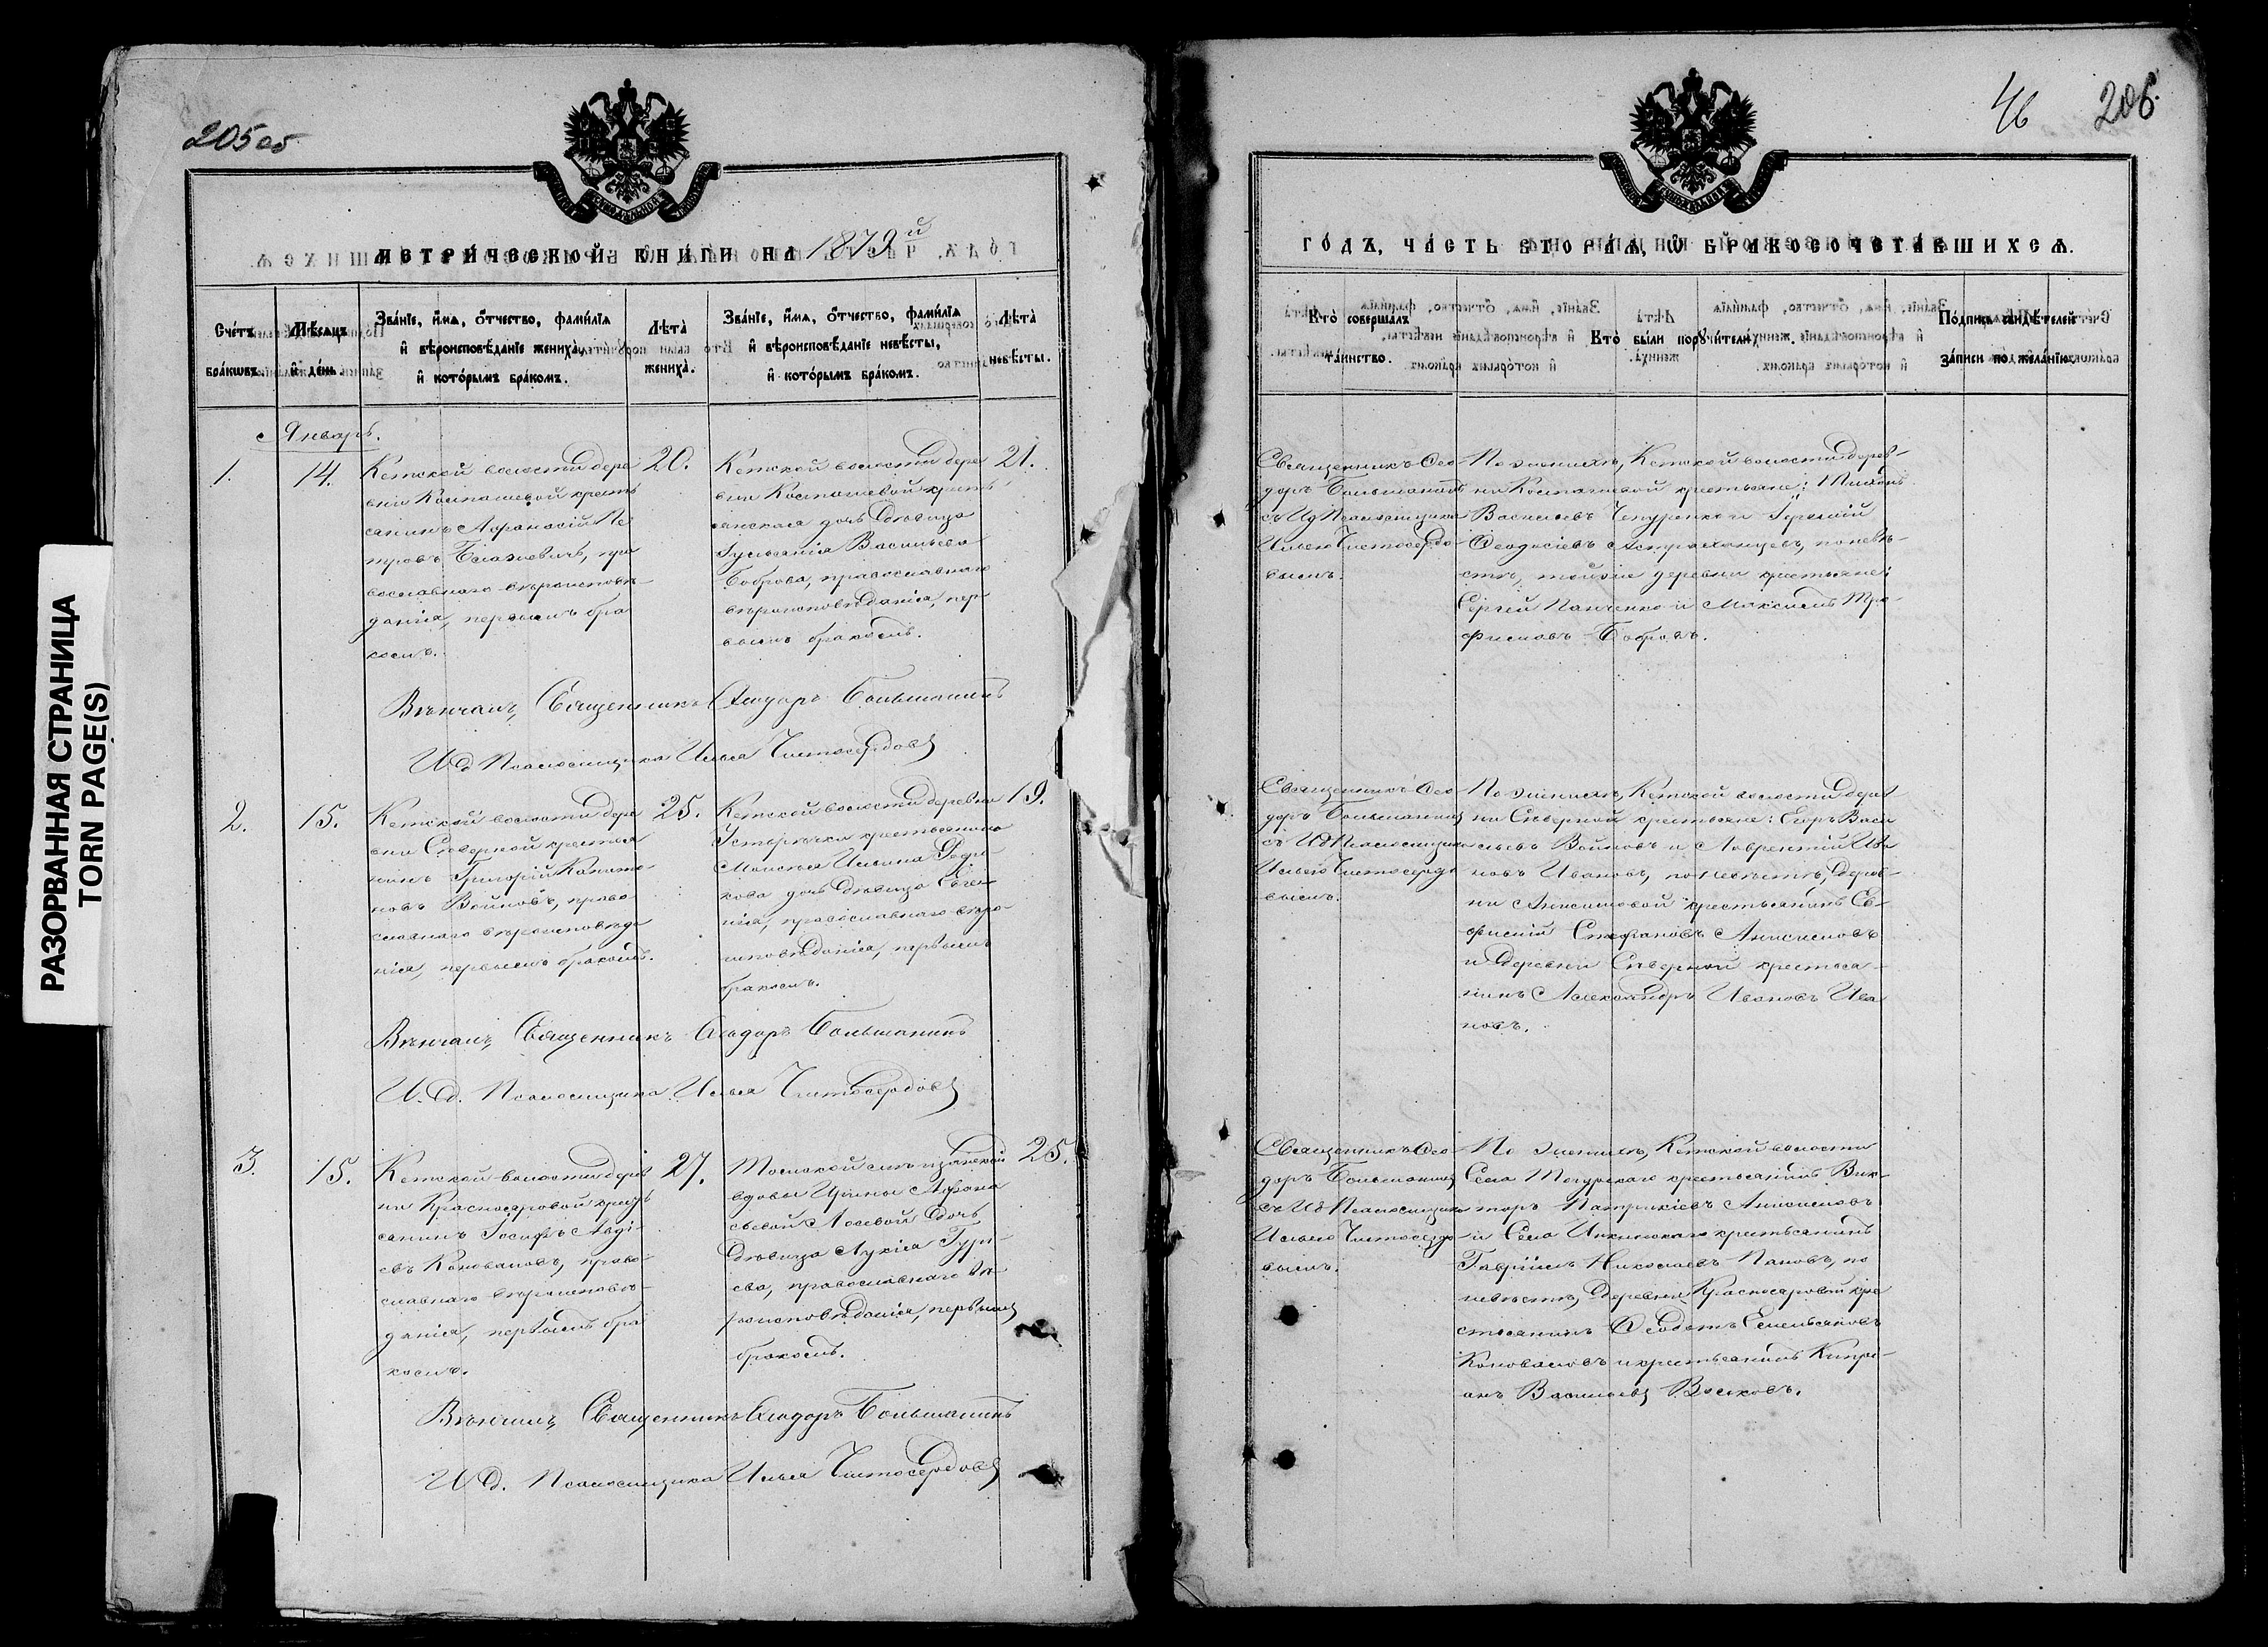 РАЗОРВАННАЯ СТРАНИЦА
TORN PAGE(S)
205об
МЕТРИЧЕСКОЙ КНИГИ НА 1879й
Счетъ браковъ.
Мѣсяцъ и день.
Званіе, имя, отчество, фамилія и вѣроисповѣданіе жениха, и которымъ бракомъ.
Лѣта жениха.
Званіе, имя, отчество, фамилія и вѣроисповѣданіе невѣсты, и которымъ бракомъ.
Лѣта невѣсты.
Январь.
1.
14.
Кетской волости дере
вни Колпашевой кресть
янинъ Афанасій Пе
тровъ, пра
вославнаго вѣроисповѣ
данія, первымъ бра
комъ.
20.
Кетской волости дере
вни Колпашевой кресть
янская дочь дѣвица
Васильева
Боброва, православнаго
вѣроисповѣданія, пер
вымъ бракомъ.
21.
Вѣнчалъ, Священникъ Ѳеодоръ Большанинъ
И д Псаломщика Илья Чистосердовъ
2.
15.
Кетской волости дере
вни Сѣверной крестья
нинъ Григорій Капито
новъ Войновъ, право
славнаго вѣроисповѣда
нія, первымъ бракомъ.
25.
Кетской волости деревни
Устьрѣчки крестьянина
Моисея Ильина Роди
кова дочь дѣвица Евге
нія, православнаго вѣро
исповѣданія, первымъ
бракомъ.
19.
Вѣнчалъ, Священникъ Ѳеодоръ Большанинъ
И. д. Псаломщика Илья Чистосердовъ
3.
15.
Кетской волости дерев
ни Краснояровой кресть
янинъ Іосифъ Авді
евъ Коноваловъ, право
славнаго вѣроисповѣ
данія, первымъ бра
комъ.
27.
Томской мѣщанской
вдовы Ирины Афана
сьевой Лосевой дочь
дѣвица Лукія Гурі
ева, православнаго вѣ
роисповѣданія, первымъ
бракомъ.
25.
Вѣнчалъ, Священникъ Ѳеодоръ Большанинъ
И д. Псаломщика Илья Чистосердовъ
46 206.
ГОДЪ, ЧАСТЬ ВТОРАЯ, Ѡ БРАКОСОЧЕТАВШИХСЯ.
Кто совершалъ таинство.
Кто были поручители.
Подпись свидѣтелей записи по желанію.
Священникъ Ѳео
доръ Большанинъ
съ И д Псаломщика
Ильею Чистосердо
вымъ.
По женихѣ, Кетской волости дерев-
ни Колпашевой крестьяне: Тихонъ
Васильевъ Чепуренко и Герасимъ
Ѳеодосіевъ Астраханцевъ, по невѣ-
стѣ, той же деревни крестьяне:
Сергей Панченко и Максимъ Тро
фимовъ Бобровъ.
Священникъ Ѳео
доръ Большанинъ
съ И д Псаломщика
Ильею Чистосердо
вымъ.
По женихѣ, Кетской волости дерев
ни Сѣверной крестьяне: Егоръ Васи
льевъ Войновъ и Лаврентій Ива
новъ Ивановъ, по невѣстѣ, Дерев-
ни Анисимовой крестьянинъ Ев-
фимій Стефановъ Анисимовъ
и Деревни Сѣверной крестья-
нинъ Александръ Ивановъ Ива
новъ.
Священникъ Ѳео
доръ Большанинъ
съ И д Псаломщика
Ильею Чистосердо
вымъ.
По женихѣ, Кетской волости
Села Тогурскаго крестьянинъ Вик-
торъ Патрикіевъ Анисимовъ
и Села Инкинскаго крестьянинъ
Гавріилъ Николаевъ Пановъ, по
невѣстѣ, Деревни Краснояровой кре
стьянинъ Ѳеодотъ Емельяновъ
Коноваловъ и крестьянинъ Кипрі-
анъ Васильевъ Волковъ.